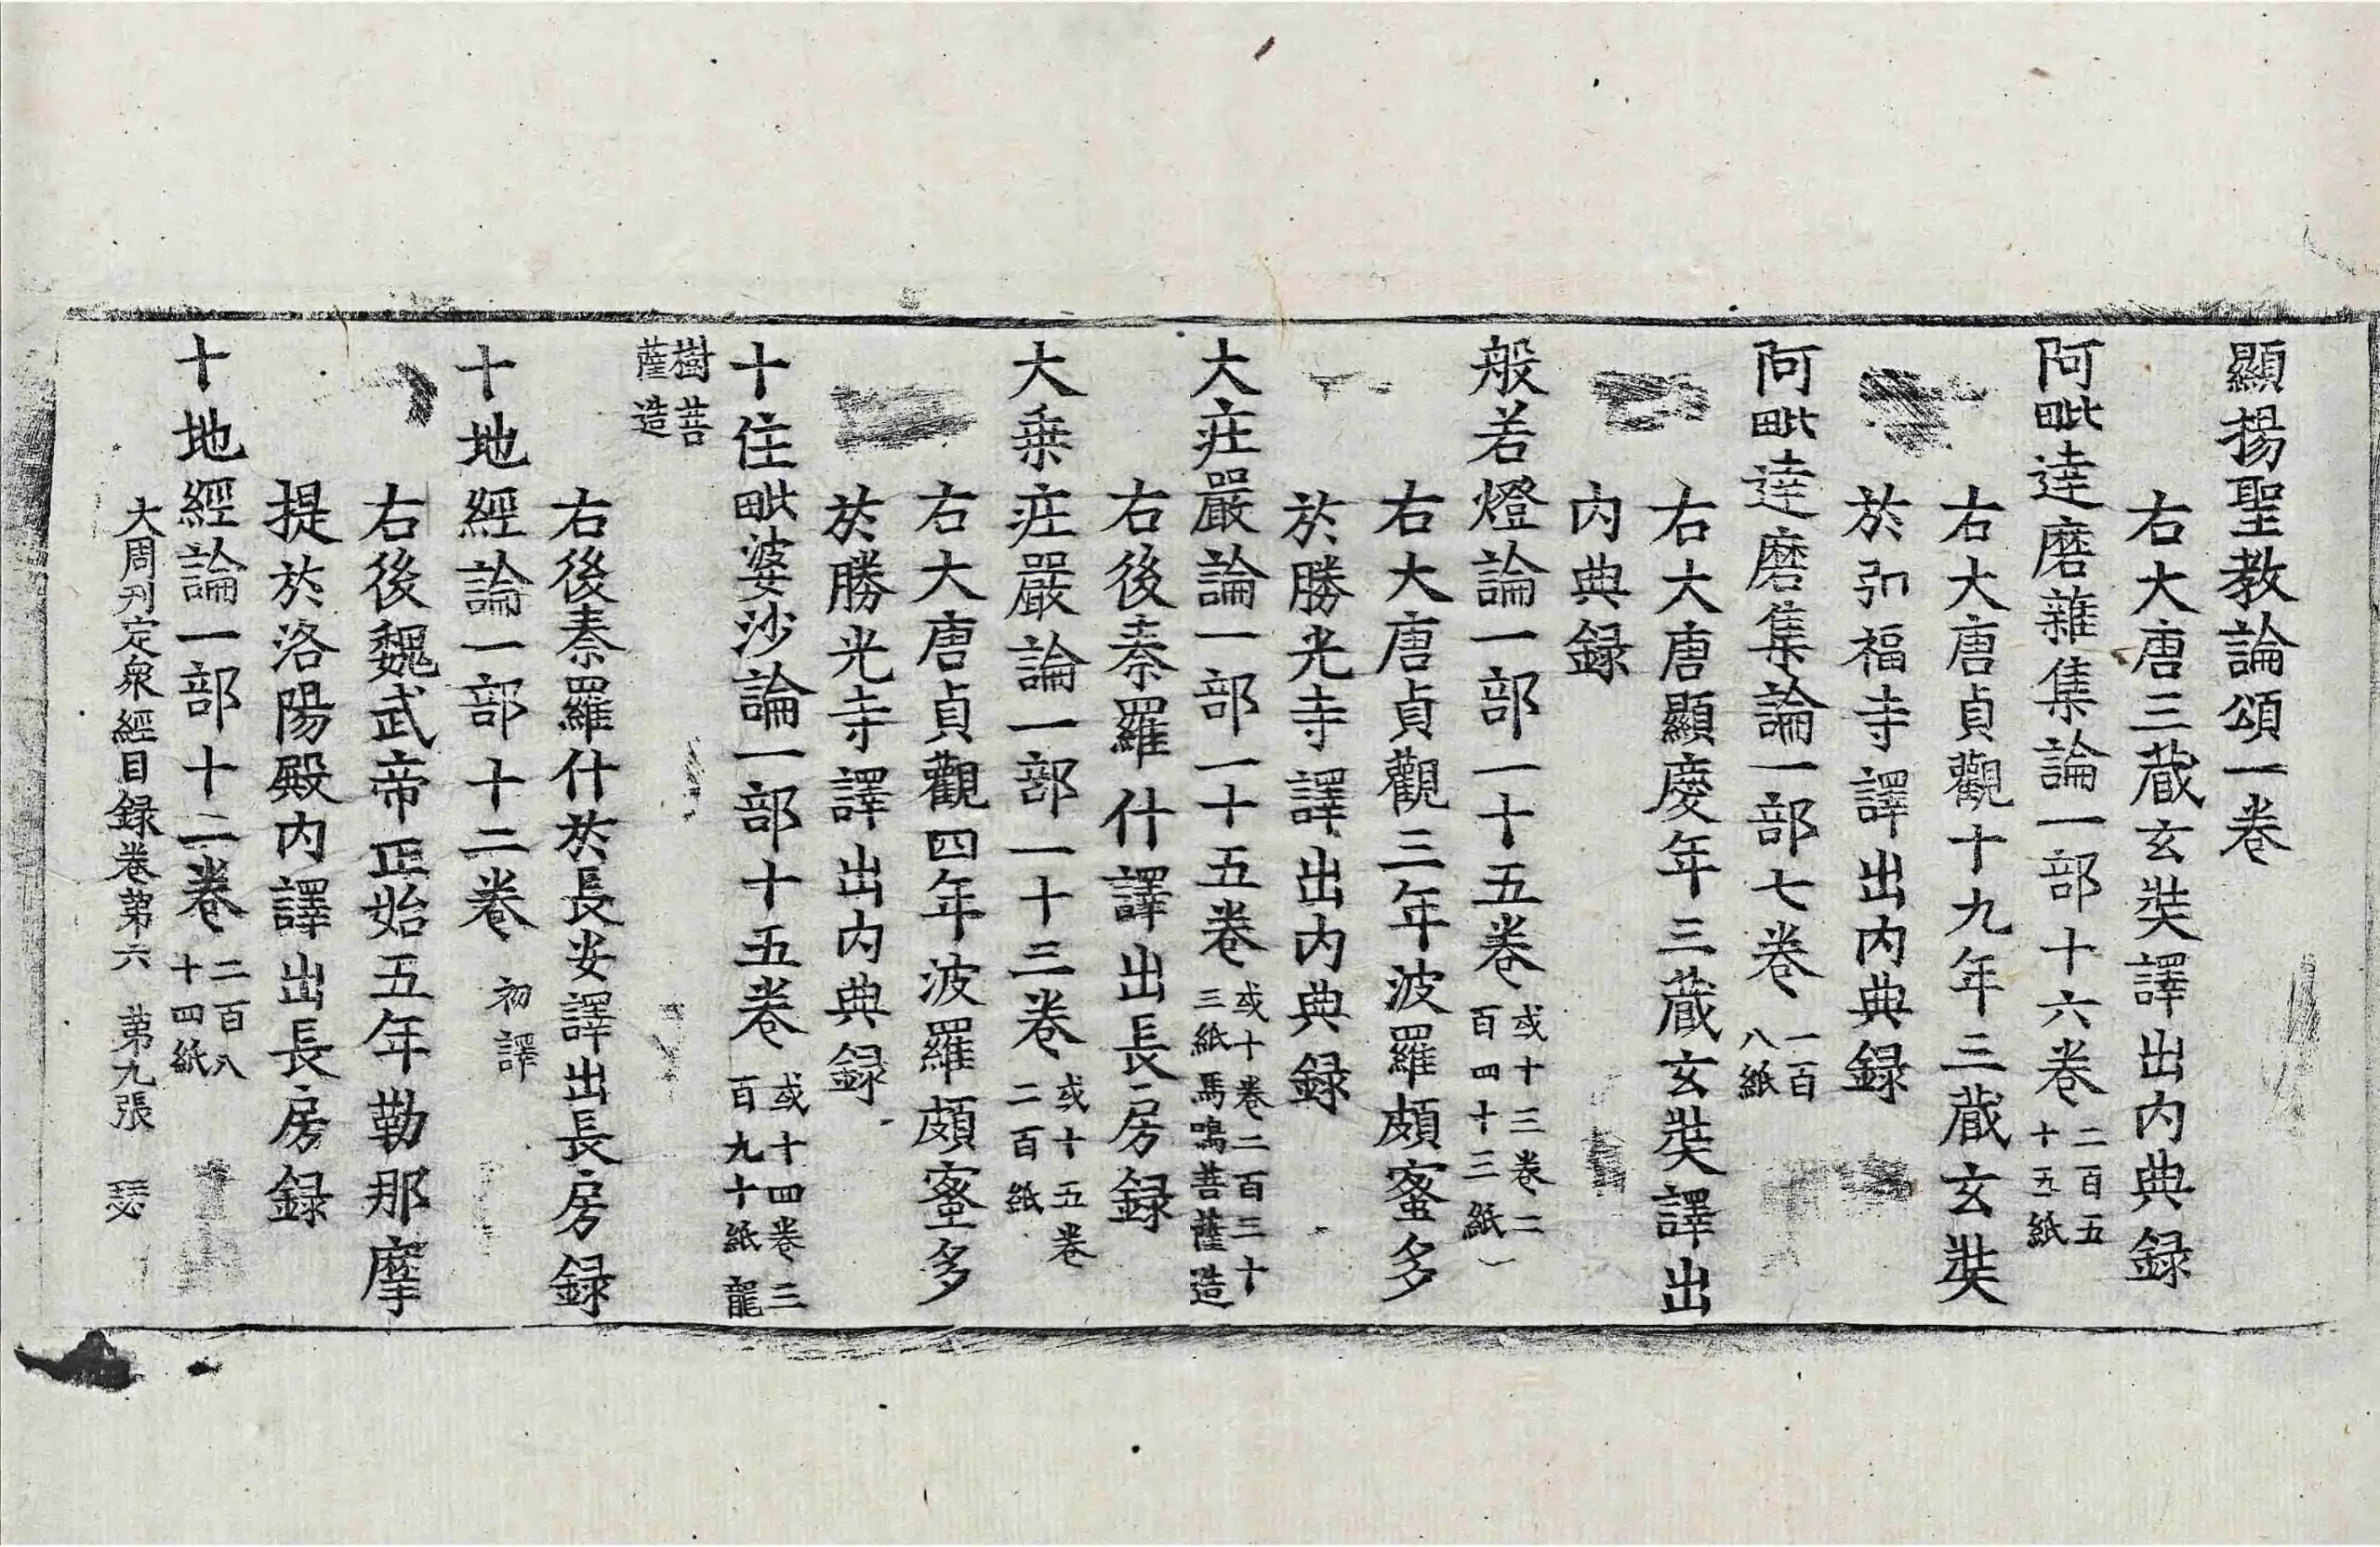 顯揚聖教論頌一卷
右大唐三蔵玄奘譯出内典録
阿毗達磨雜集論一部十六卷二百五十五紙
右大唐貞觀十九年三蔵玄奘
於弘福寺譯出内典録
阿毗達磨集論一部七卷一百八紙
右大唐顯慶年三蔵玄奘譯出
内典録
般若燈論一部一十五卷或十三卷二百四十三紙
右大唐貞觀三年波羅頗蜜多
於勝光寺譯出内典録
大庄嚴論一部一十五卷或十卷二百三十三紙馬鳴菩薩造
右後秦羅什譯出長房録
大乗庄嚴論一部一十三卷或十五卷二百紙
右大唐貞觀四年波羅頗蜜多
於勝光寺譯出内典録
十住毗婆沙論一部十五卷或十四卷三百九十紙龍
樹菩薩造
右後秦羅什於長安譯出長房録
十地經論一部十二卷初譯
右後魏武帝正始五年勒那摩
提於洛陽殿内譯出長房録
十地經論一部十二卷二百八十四紙
大周刋定衆經目録卷第六 第九張